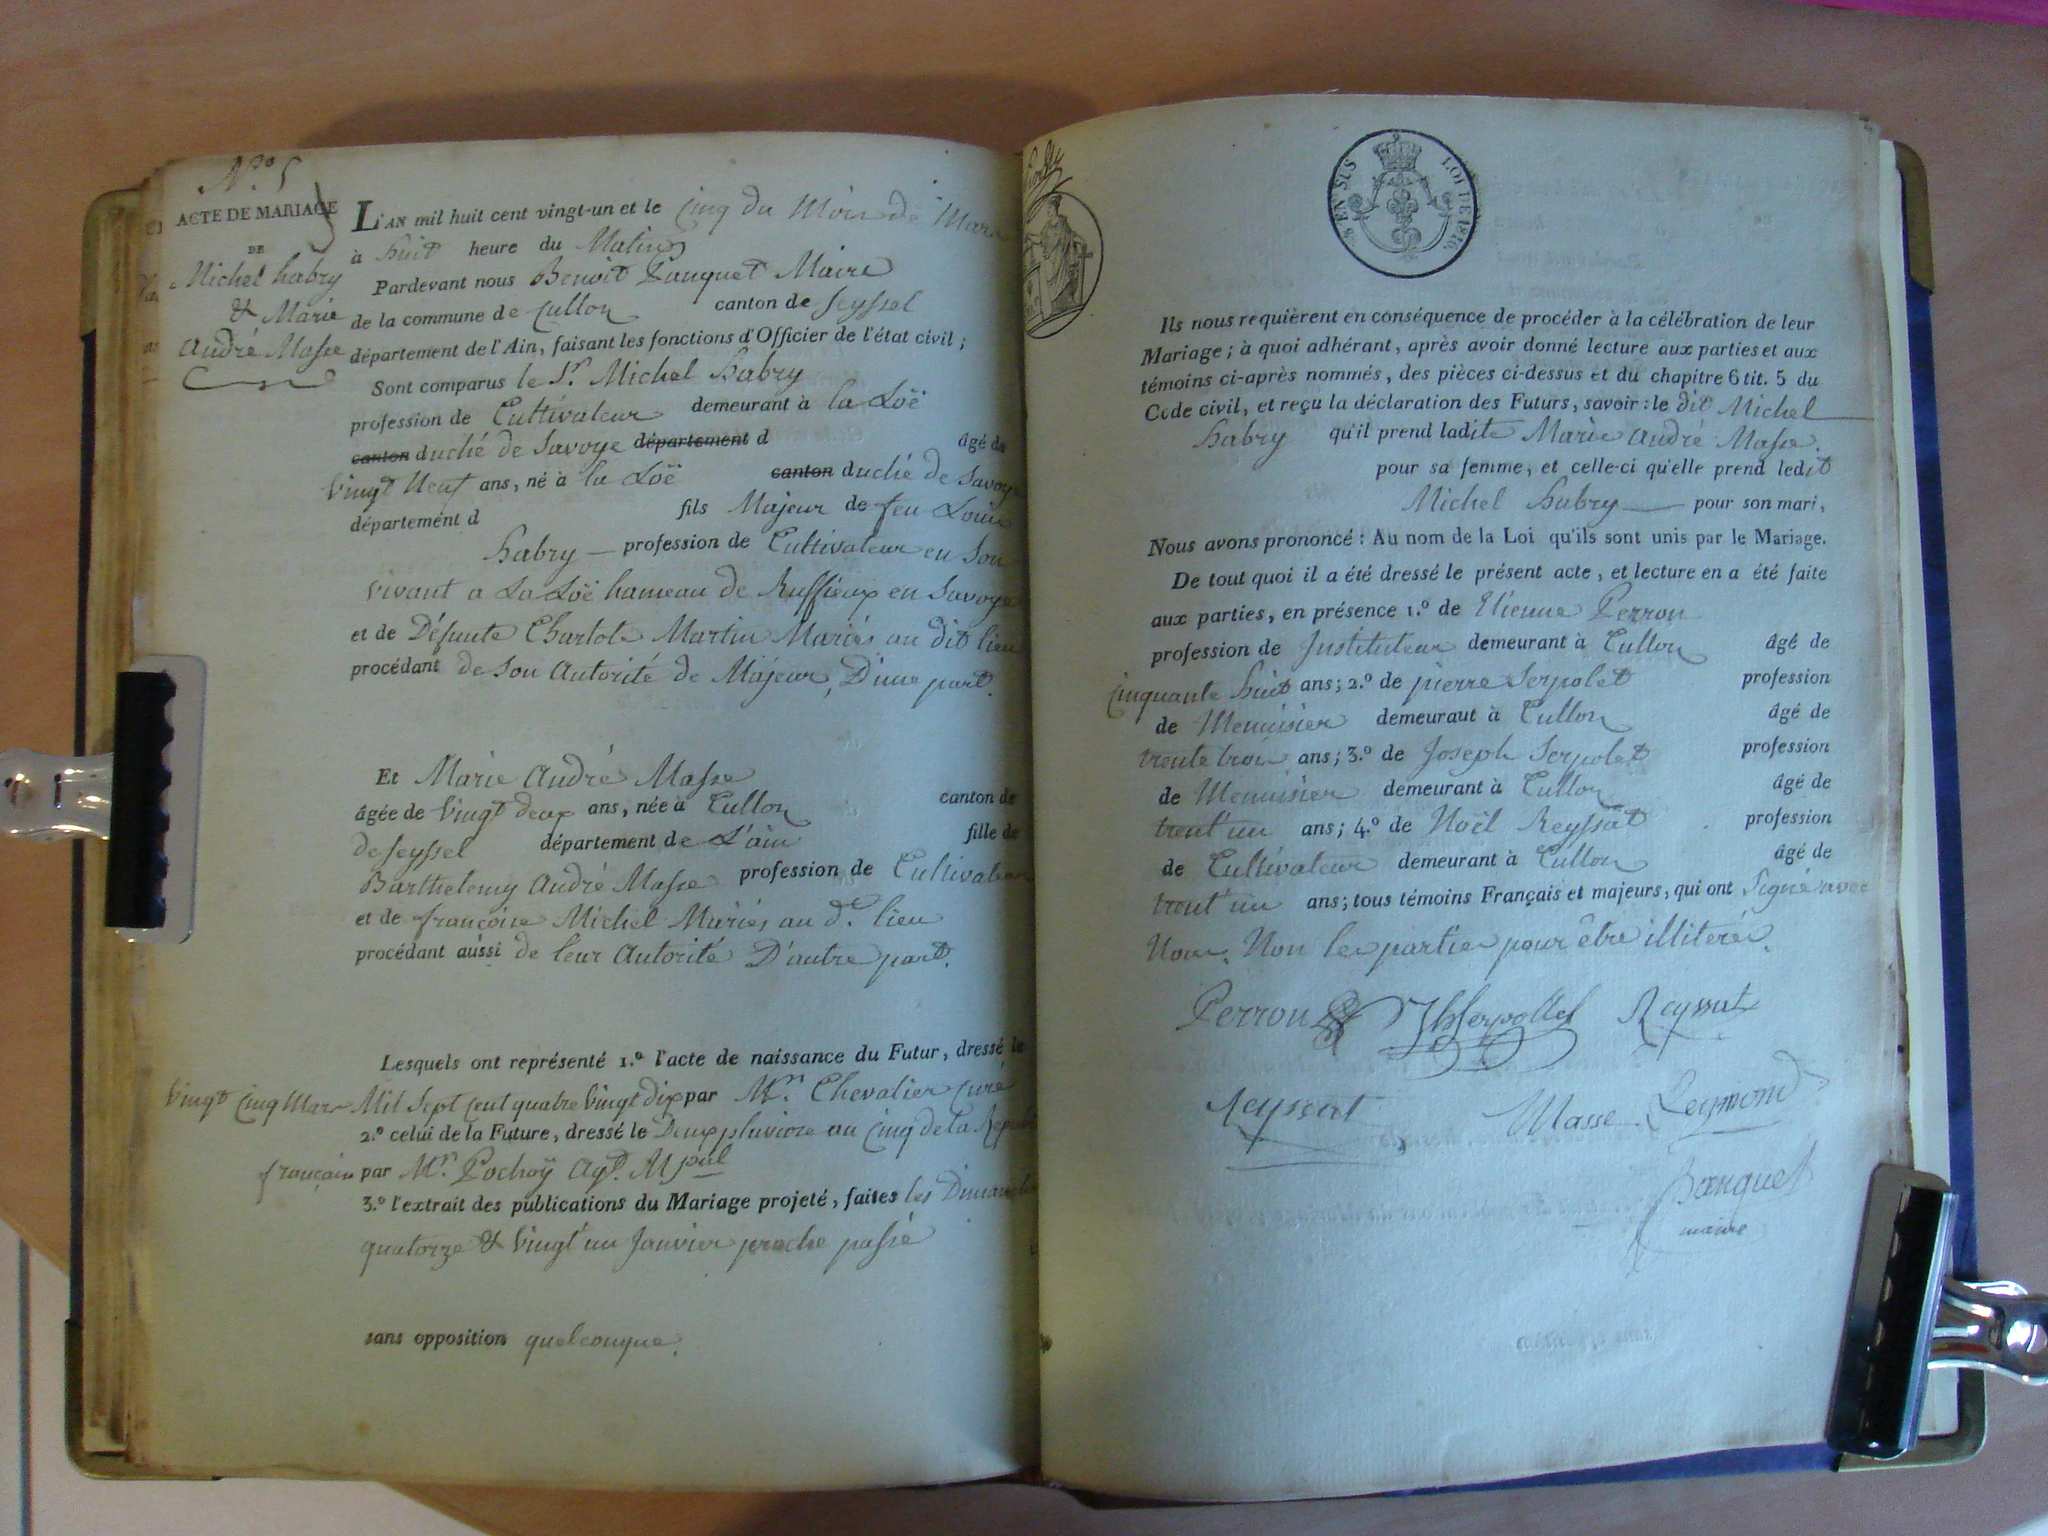 N.º 5
ACTE DE MARIAGE
DE
Michel habry
& Marie
André Masse
L'AN mil huit cent vingt-un et le Cinq du Mois de Mars
à huit heure du Matin
Pardevant nous Benoit Panquet Maire
de la commune de Cullon canton de Seyssel
département de l'Ain, faisant les fonctions d'Officier de l'état civil ;
Sont comparus le Sr. Michel habry
profession de Cultivateur demeurant à la Loë
canton duché de Savoye département d âgé de
Vingt Neuf ans, né à la Loë canton duché de Savoye
département d fils Majeur de feu Louis
habry profession de Cultivateur en Son
vivant a La Loë hameau de Ruffieux en Savoye
et de Défunte Charlote Martin Mariés au dit lieu
procédant de Son Autorité de Majeur, D'une part.
Et Marie André Masse
âgée de Vingt deux ans, née à Cullon canton de
de Seyssel département de L'ain fille de
Barthelemy André Masse profession de Cultivateur
et de françoise Michel Mariés au d.e lieu
procédant aussi de leur Autorité D'autre part.
Lesquels ont représenté 1.º l'acte de naissance du Futur, dressé le
Vingt Cinq Mars Mil Sept Cent quatre Vingt Dix par Mr. Chevalier Curé
2.º celui de la Future, dressé le Deux pluviose an Cinq de la Répub
français par Mr. Pochoÿ Agt. Mpal
3.º l'extrait des publications du Mariage projeté, faites les Dimanches
quatorze & Vingt un Janvier proche passé
sans opposition quelconque.
8. EN SUS LOI DE 1816.
Ils nous requièrent en conséquence de procéder à la célébration de leur
Mariage ; à quoi adhérant, après avoir donné lecture aux parties et aux
témoins ci-après nommés, des pièces ci-dessus et du chapitre 6 tit. 5 du
Code civil, et reçu la déclaration des Futurs, savoir : le dit Michel
habry qu'il prend ladite Marie André Masse.
pour sa femme, et celle-ci qu'elle prend ledit
Michel habry pour son mari,
Nous avons prononcé : Au nom de la Loi qu'ils sont unis par le Mariage.
De tout quoi il a été dressé le présent acte, et lecture en a été faite
aux parties, en présence 1.º de Etienne Perron
profession de Instituteur demeurant à Cullon âgé de
Cinquante huit ans ; 2.º de pierre Serpolet profession
de Menuisier demeurant à Cullon âgé de
trente trois ans ; 3.º de Joseph Serpolet profession
de Menuisier demeurant à Cullon âgé de
trent'un ans ; 4.º de Noël Reyssat profession
de Cultivateur demeurant à Cullon âgé de
trent'un ans ; tous témoins Français et majeurs, qui ont Signé avec
Nous. Non les parties pour être illiterés.
Perron Serpollet Reyssat
Reyssat Masse Reymond
Panquet
maire